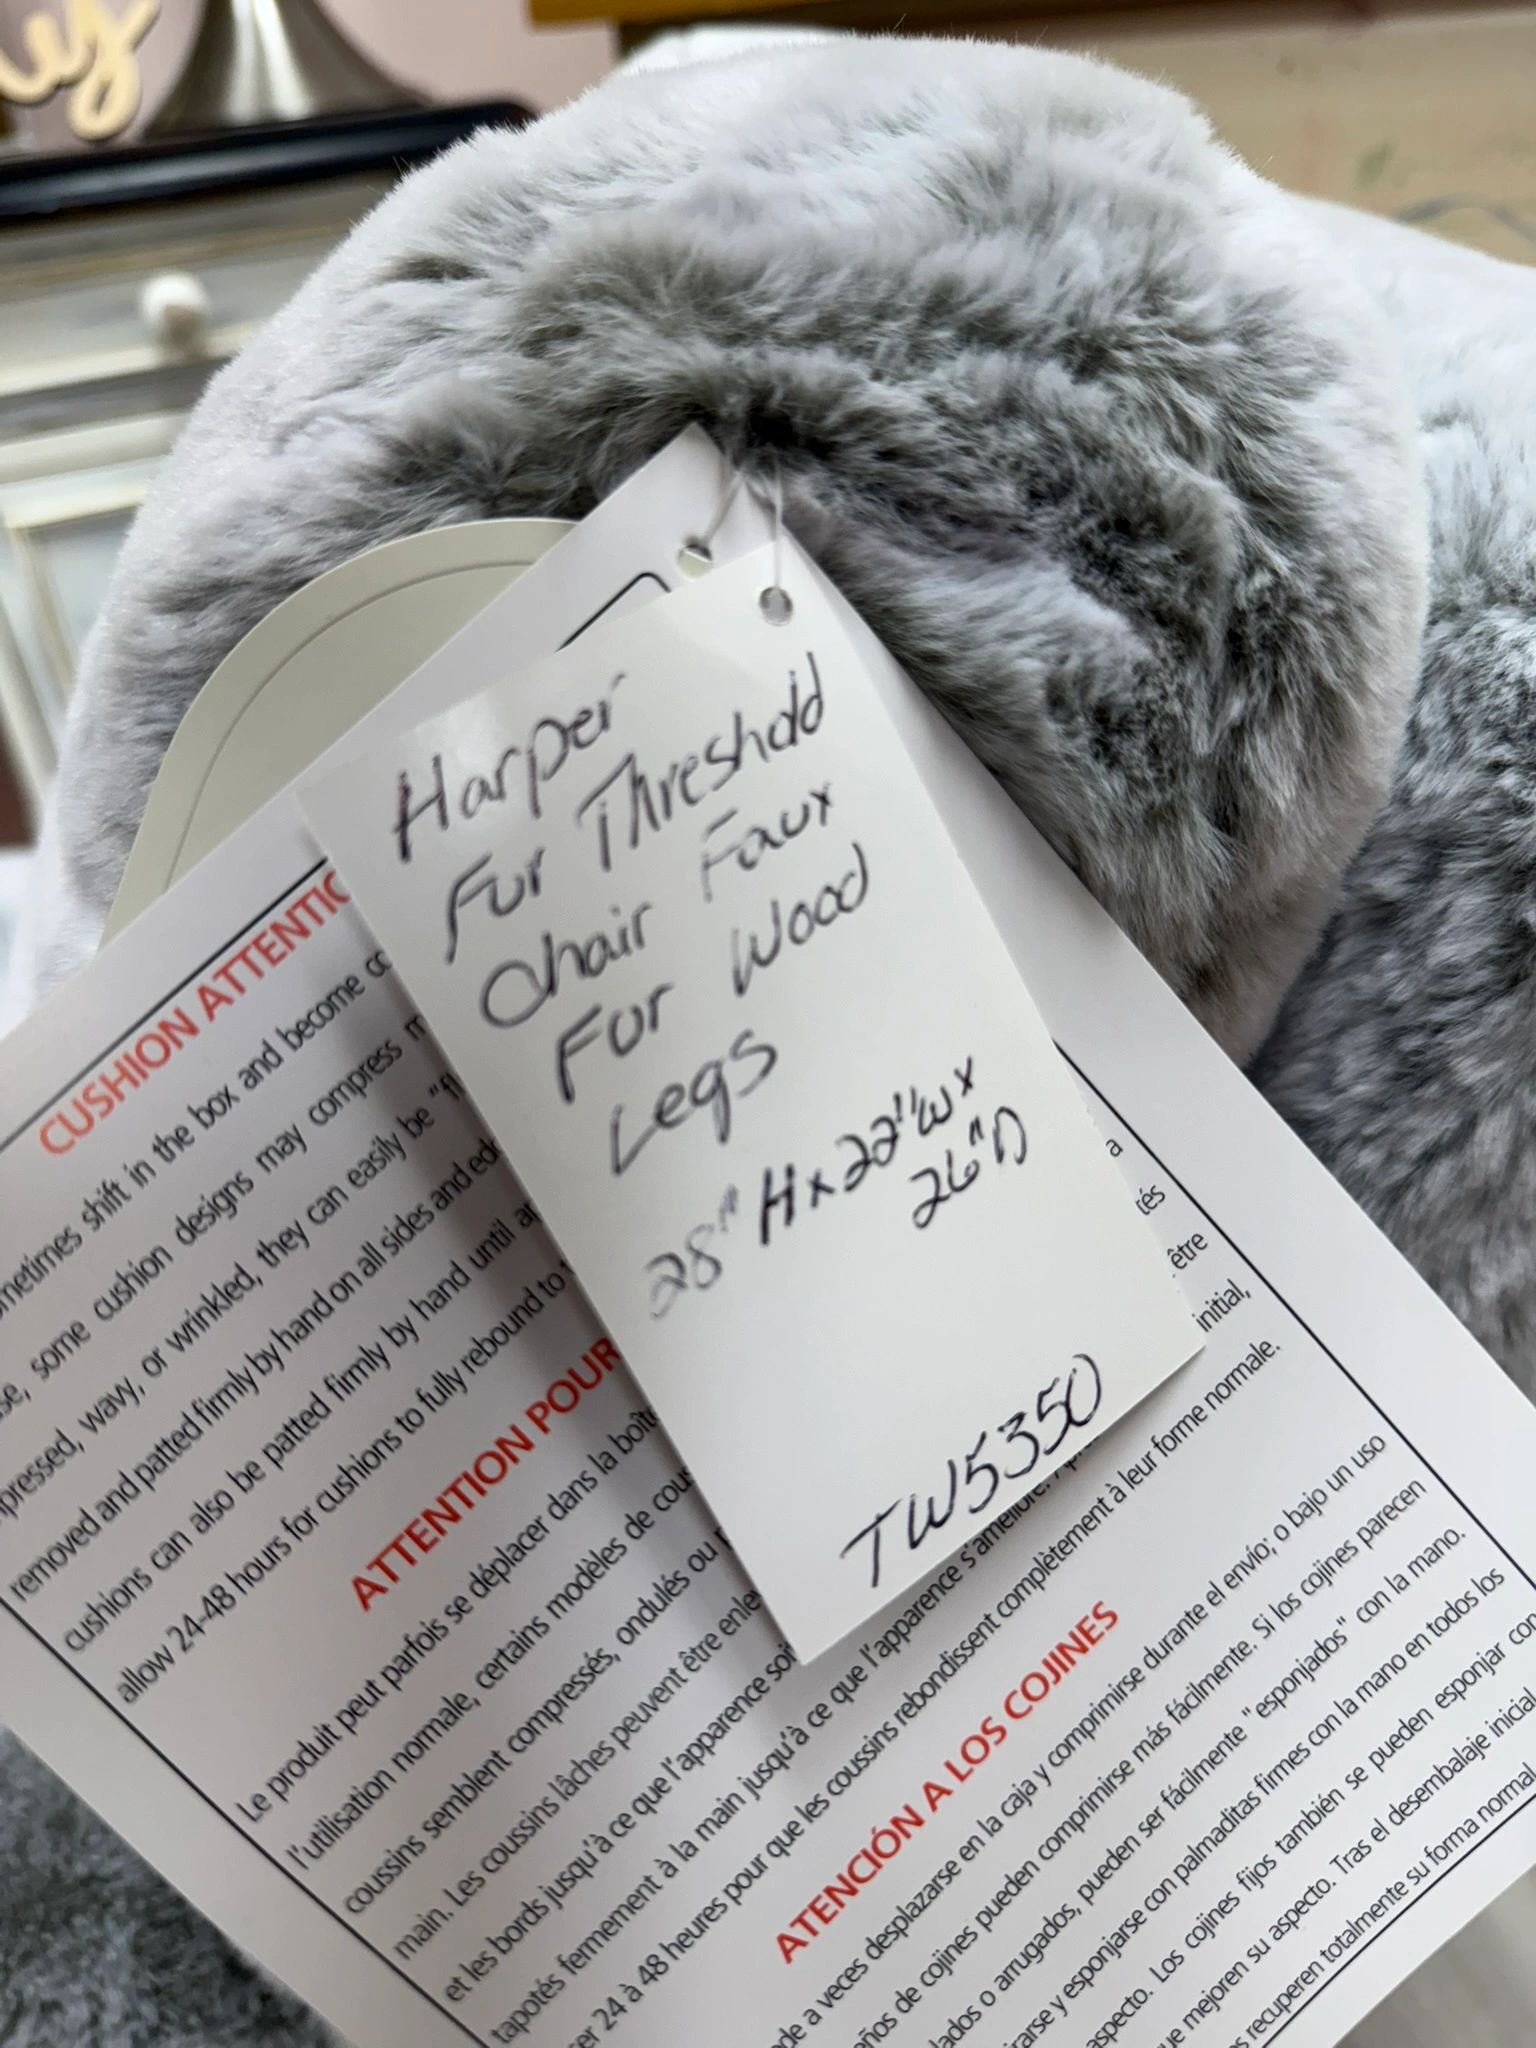 uy
Harper
Fur Threshold
Chair Faux
Fur Wood
Legs
28" H x 22" W x
26" D
TW5350
CUSHION ATTENTIO
metimes shift in the box and become co
se, some cushion designs may compress m
mpressed, wavy, or wrinkled, they can easily be "fl
removed and patted firmly by hand on all sides and ed
cushions can also be patted firmly by hand until a
allow 24-48 hours for cushions to fully rebound to
ATTENTION POUR
Le produit peut parfois se déplacer dans la boîte
l'utilisation normale, certains modèles de cous
coussins semblent compressés, ondulés ou
main. Les coussins lâches peuvent être enle
et les bords jusqu'à ce que l'apparence soi
tapotés fermement à la main jusqu'à ce que l'apparence s'améliore.
ser 24 à 48 heures pour que les coussins rebondissent complètement à leur forme normale.
a
tés
être
initial,
ATENCIÓN A LOS COJINES
ede a veces desplazarse en la caja y comprimirse durante el envío; o bajo un uso
eños de cojines pueden comprimirse más fácilmente. Si los cojines parecen
lados o arrugados, pueden ser fácilmente "esponjados" con la mano.
irarse y esponjarse con palmaditas firmes con la mano en todos los
aspecto. Los cojines fijos también se pueden esponjar con
ue mejoren su aspecto. Tras el desembalaje inicial
os recuperen totalmente su forma normal